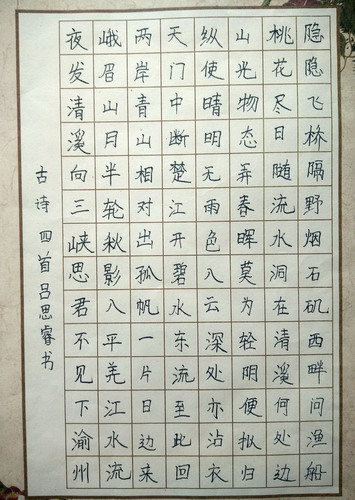 隐隐飞桥隔野烟石矶西畔问渔船
桃花尽日随流水洞在清溪何处边
山光物态弄春晖莫为轻阴便拟归
纵使晴明无雨色入云深处亦沾衣
天门中断楚江开碧水东流至此回
两岸青山相对出孤帆一片日边来
峨眉山月半轮秋影入平羌江水流
夜发清溪向三峡思君不见下渝州
古诗四首吕思睿书